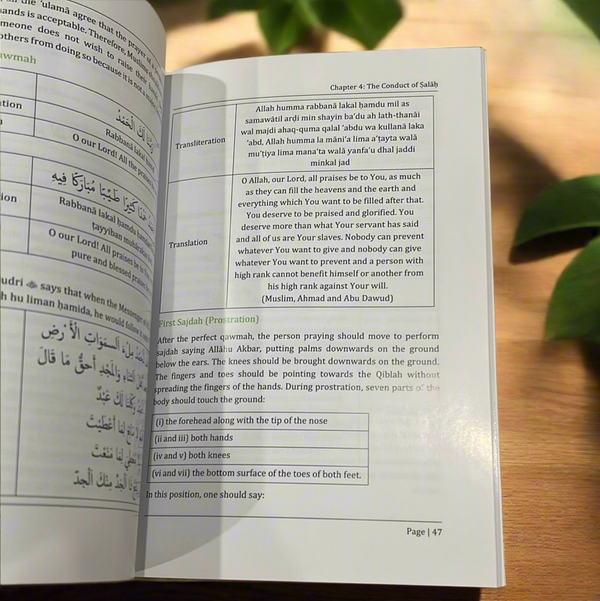 the 'ulamā agree that the prayer of a
hands is acceptable. Therefore, Muslim
someone does not wish to raise their
others from doing so because it is not a
awmah
رَبَّنَا لَكَ الْحَمْدُ
Rabbanā lakal ḥam
O our Lord! All the prais
حَمْدًا كَثِيرًا طَيِّبًا مُبَارَكًا فِيهِ
Rabbanā lakal ḥamdu ḥamdan
ṭayyiban mubārakan
O our Lord! All praises be to
pure and blessed prais
udri says that when the Messenger of
h hu liman ḥamida, he would follow
مِلْءَ السَّمَوَاتِ الْأَرْضِ
الثَّنَاءِ وَالْمَجْدِ أَحَقُّ مَا قَالَ
وَكُلُّنَا لَكَ عَبْدٌ
لَا مَانِعَ لِمَا أَعْطَيْتَ
مُعْطِيَ لِمَا مَنَعْتَ
ذَا الْجَدِّ مِنْكَ الْجَدُّ
Chapter 4: The Conduct of Ṣalāḥ
Transliteration
Allah humma rabbanā lakal ḥamdu mil as
samawātil arḍi min shayin ba'du ah lath-thanāi
wal majdi ahaq-quma qalal 'abdu wa kullanā laka
'abd, Allah humma la māni'a lima a'ṭayta walā
mu'ṭiya lima mana'ta walā yanfa'u dhal jaddi
minkal jad
Translation
O Allah, our Lord, all praises be to You, as much
as they can fill the heavens and the earth and
everything which You want to be filled after that.
You deserve to be praised and glorified. You
deserve more than what Your servant has said
and all of us are Your slaves. Nobody can prevent
whatever You want to give and nobody can give
whatever You want to prevent and a person with
high rank cannot benefit himself or another from
his high rank against Your will.
(Muslim, Ahmad and Abu Dawud)
First Sajdah (Prostration)
After the perfect qawmah, the person praying should move to perform
sajdah saying Allāhu Akbar, putting palms downwards on the ground
below the ears. The knees should be brought downwards on the ground.
The fingers and toes should be pointing towards the Qiblah without
spreading the fingers of the hands. During prostration, seven parts of the
body should touch the ground:
(i) the forehead along with the tip of the nose
(ii and iii) both hands
(iv and v) both knees
(vi and vii) the bottom surface of the toes of both feet.
In this position, one should say:
Page | 47